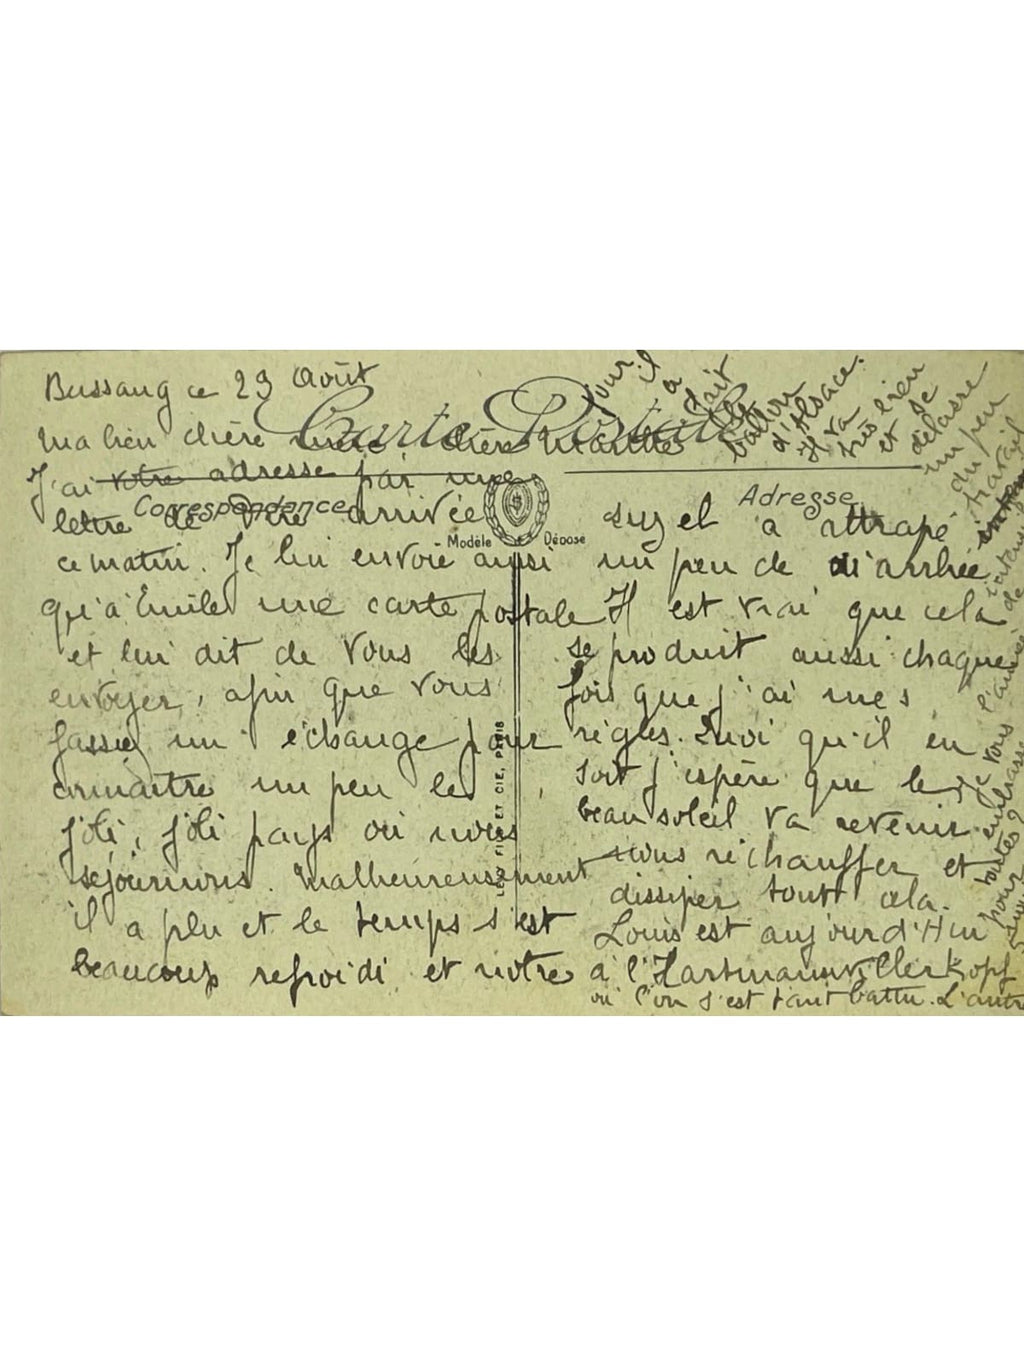 Bussang ce 29 Août
Carte Postale
Ma bien chère
J'ai votre adresse par une
Correspondance
lettre de arrivée
Modèle Déposé
ce matin. Je lui envoie aussi
qu'à Emile une carte postale
et lui dit de vous les
envoyer, afin que vous
fassiez un échange pour
connaître un peu le
joli, joli pays où nous
séjournons. Malheureusement
il a plu et le temps s'est
beaucoup refroidi et notre
LEVY FILS ET CIE, PARIS
Adresse
Suzel a attrapé
un peu de diarrhée
Il est vrai que cela
se produit aussi chaque
fois que j'ai mes
règles. Quoi qu'il en
soit j'espère que le
beau soleil va revenir
nous réchauffer et
dissiper tout cela.
Louis est aujourd'hui
à l'Hartmannwillerkopf
où l'on s'est tant battu. L'autre
jour il a fait
le ballon
d'Alsace.
Il va
très bien
et se
délasse
un peu
du travail
intense
de
l'année
Je vous embrasse
toutes 2
pour